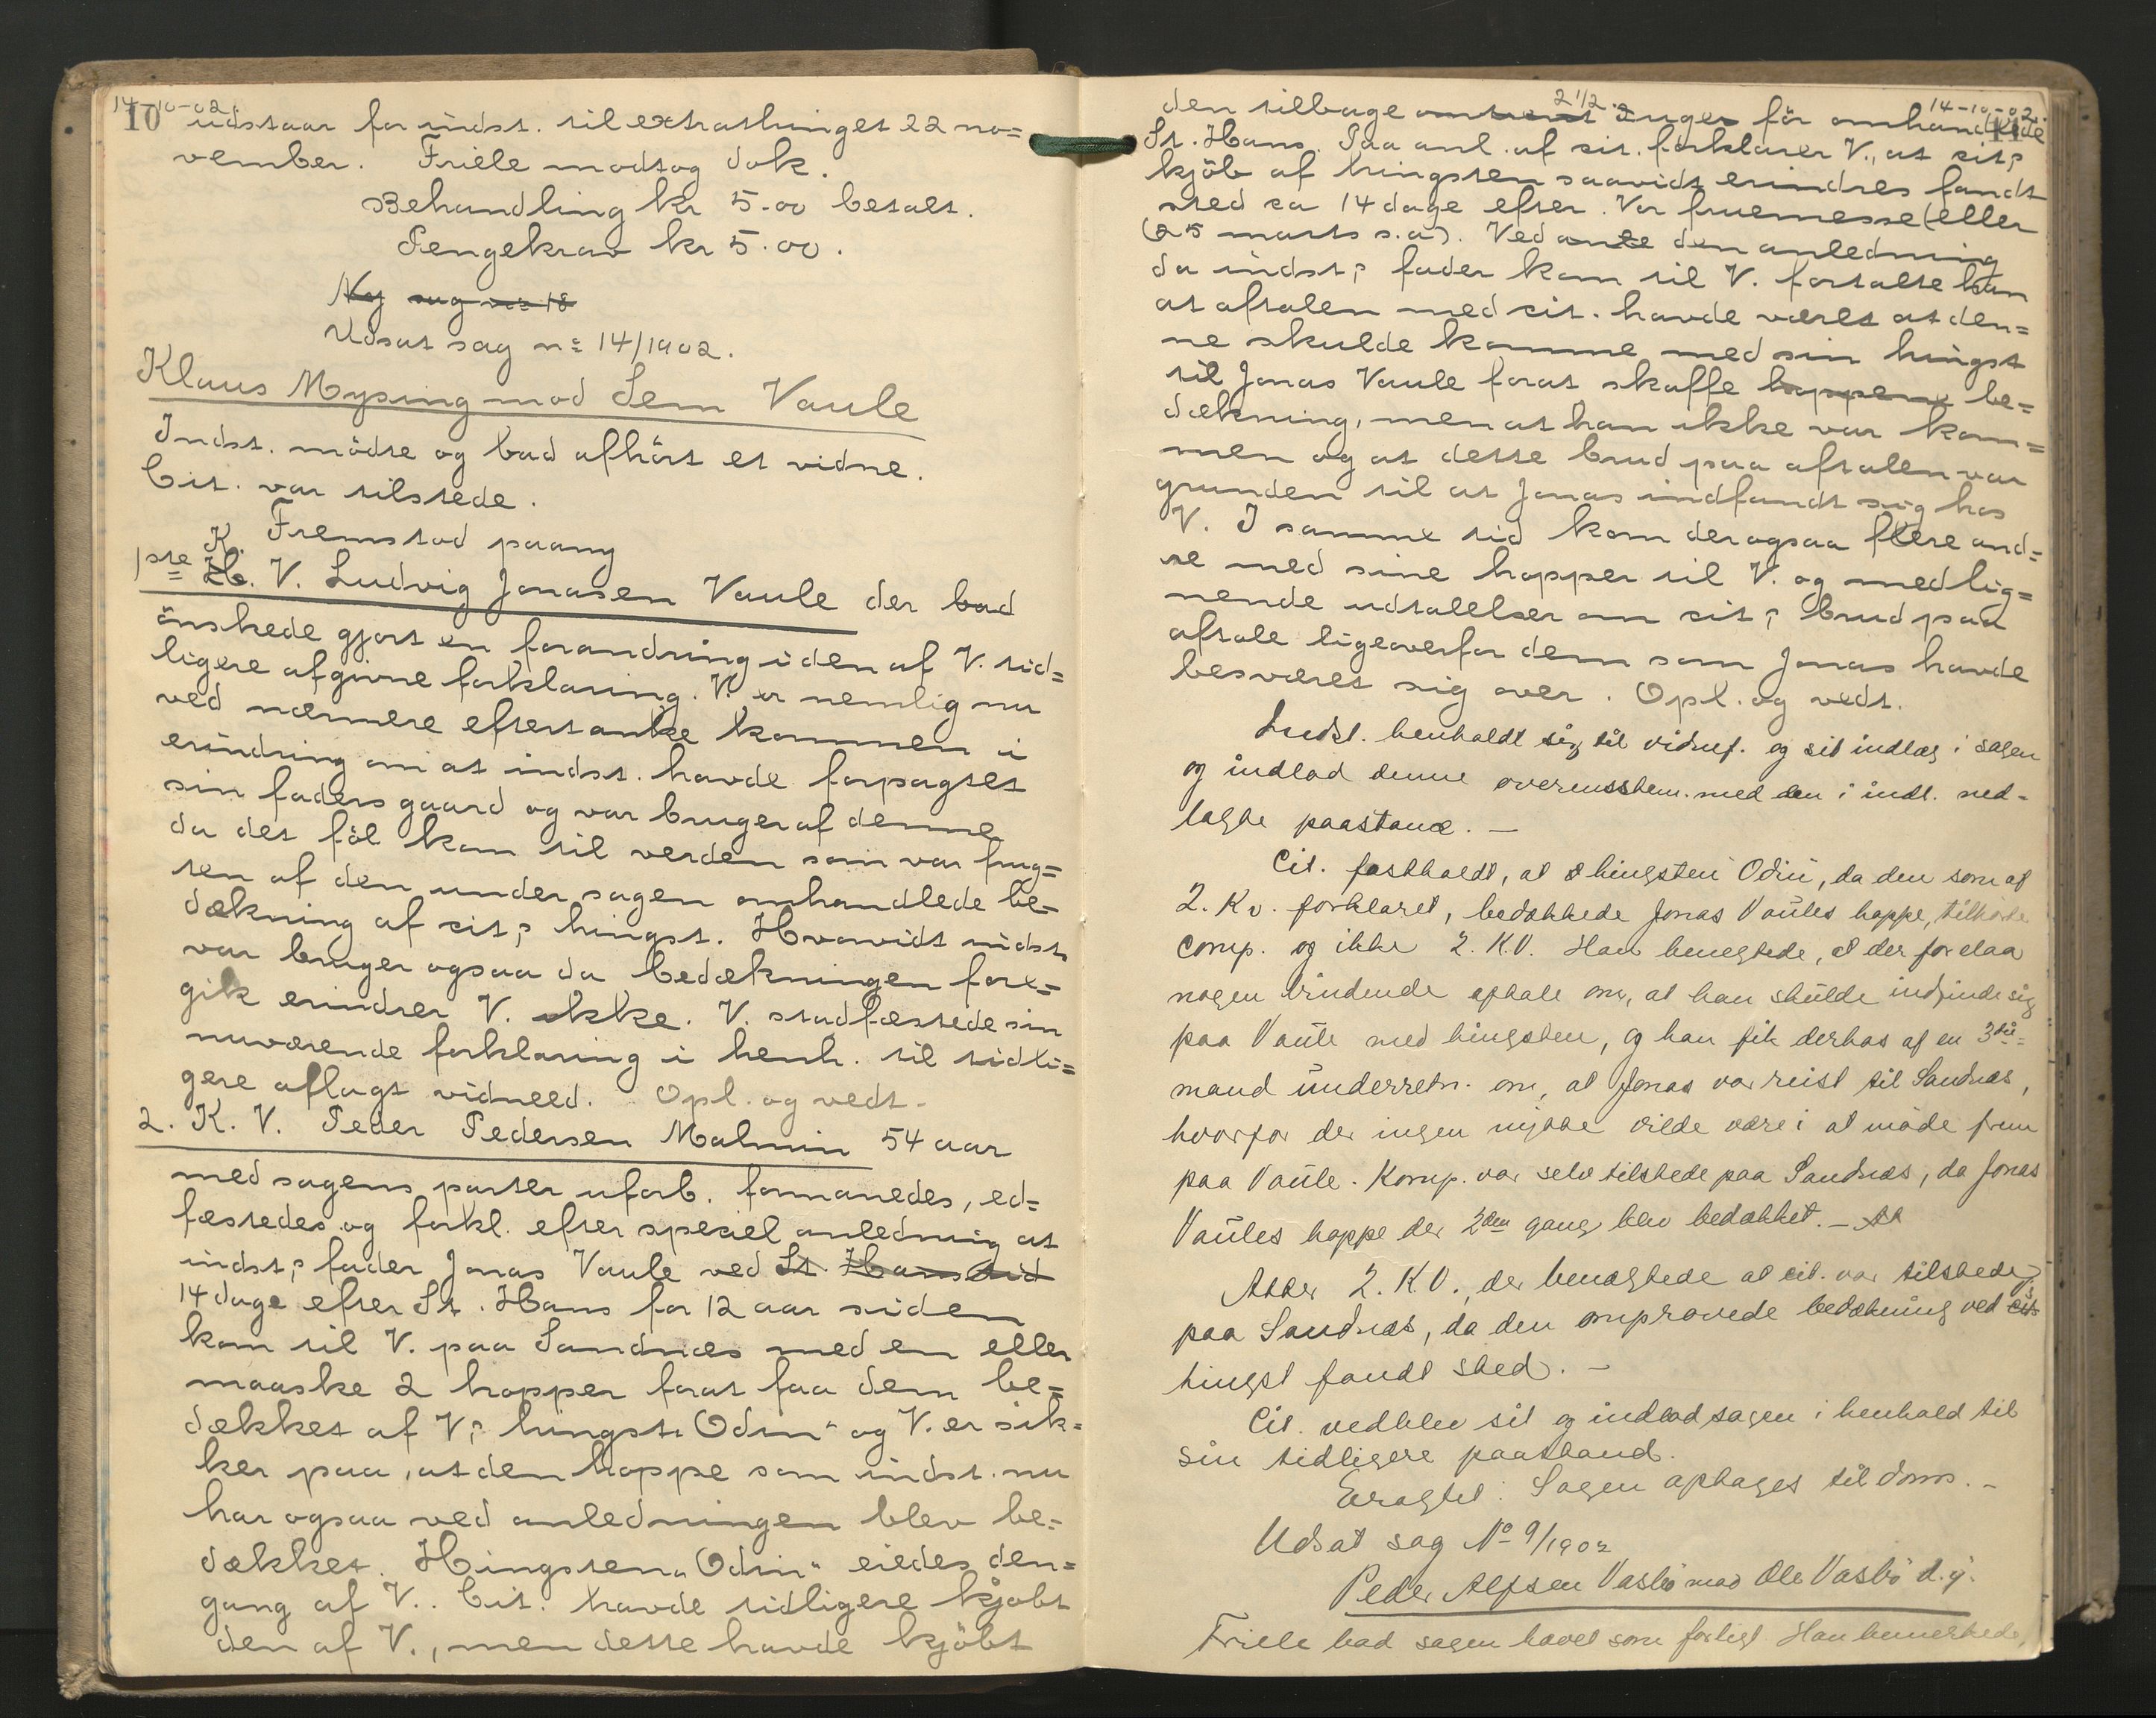 14-10-02.
10
udstaar for indst. til extrathinget 22 no=
vember. Friele modtog dok.
Behandling kr 5.00 betalt.
Pengekrav kr 5.00.
Ny sag no 18
Udsat sag no 14/1902.
Klaus Mysing mod Sem Vaule
Indst. mödte og bad afhört et vidne.
Cit. var tilstede.
Fremstod paany
1ste K. V. Ludvig Jonasen Vaule der bad
önskede gjort en forandring i den af V. tid=
ligere afgivne forklaring. V. er nemlig nu
ved nærmere eftertanke kommen i
erindring om at indst. havde forpagtet
sin faders gaard og var bruger af denne
da det föl kom til verden som var frug=
ten af den under sagen omhandlede be=
dækning af cit.s hingst. Hvorvidt indst.
var bruger ogsaa da bedækningen fore=
gik erindrer V. ikke. V. stadfæstede sin
nuværende forklaring i henh. til tidli=
gere aflagt vidneed. Opl. og vedt.
2. K. V. Peder Pedersen Malmin 54 aar
med sagens parter uforb. formanedes, ed=
fæstedes og forkl. efter speciel anledning at
indst.s fader Jonas Vaule ved St. Hans tid
14 dage efter St. Hans for 12 aar siden
kom til V. paa Sandnæs med en eller
maaske 2 hopper forat faa dem be=
dækket af V.s hingst „Odin" og V. er sik=
ker paa, at den hoppe som indst. nu
har ogsaa ved anledningen blev be=
dækket. Hingsten „Odin" eiedes den=
gang af V.. Cit. havde tidligere kjöbt
den af V., men dette havde kjöbt
14-10-02.
11
2 1/2
den tilbage omtrent 2 uger för omhandlede
St. Hans. Paa anl. af cit. forklarer V., at cit.s
kjöb af hingsten saavidt erindres fandt
sted ca 14 dage efter Vor fruemesse (eller
(25 marts s.a). Ved ante den anledning
da indst.s fader kom til V. fortalte han
at aftalen med cit. havde været at den=
ne skulde komme med sin hingst
til Jonas Vaule forat skaffe hoppene be=
dækning, men at han ikke var kom=
men og at dette brud paa aftalen var
grunden til at Jonas indfandt sig hos
V. I samme tid kom der ogsaa flere and=
re med sine hopper til V. og med lig=
nende udtalelser om cit.s brud paa
aftale ligeoverfor dem som Jonas havde
besværet sig over. Opl. og vedt.
Indst. henholdt sig til vidnef. og sit indlæg i sagen
og indlod denne overensstem. med den i indl. ned-
lagte paastand. —
Cit. fastholdt, at hingsten Odin, da den som af
2. Kv. forklaret, bedækkede Jonas Vaules hoppe, tilhörte
comp. og ikke 2. K.V. Han benegtede, at der forelaa
nogen bindende aftale om, at han skulde indfinde sig
paa Vaule med hingsten, og han fik derhos af en 3die=
mand underretn. om, at Jonas var reist til Sandnæs,
hvorfor der ingen nytte vilde være i at möde frem
paa Vaule. Komp. var selv tilstede paa Sandnæs, da Jonas
Vaules hoppe der 2den gang blev bedækket. —
Atter 2. K.V., der benægtede at cit. var tilstede
paa Sandnæs, da den omprovede bedækning ved cit.s
hingst fandt sted. —
Cit. vedblev sit og indlod sagen i henhold til
sin tidligere paastand.
Eragtet: Sagen optages til doms. —
Udsat sag No 9/1902
Peder Alfsen Vasbö mod Ole Vasbö d.y.
Friele bad sagen hævet som forligt. Han bemerkede,